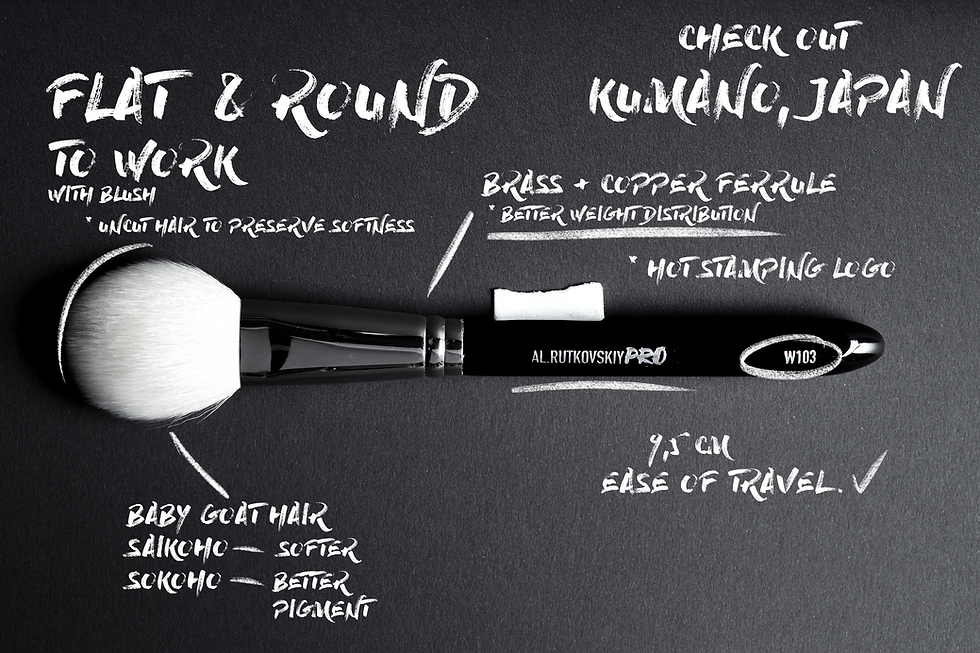 CHECK OUT
KUMANO, JAPAN
FLAT & ROUND
TO WORK
WITH BLUSH
* UNCUT HAIR TO PRESERVE SOFTNESS
BRASS + COPPER FERRULE
* BETTER WEIGHT DISTRIBUTION
* HOT STAMPING LOGO
AL.RUTKOVSKIY PRO
W103
9,5 CM
EASE OF TRAVEL. ✓
BABY GOAT HAIR
SAIKOHO — SOFTER
SOKOHO — BETTER
PIGMENT